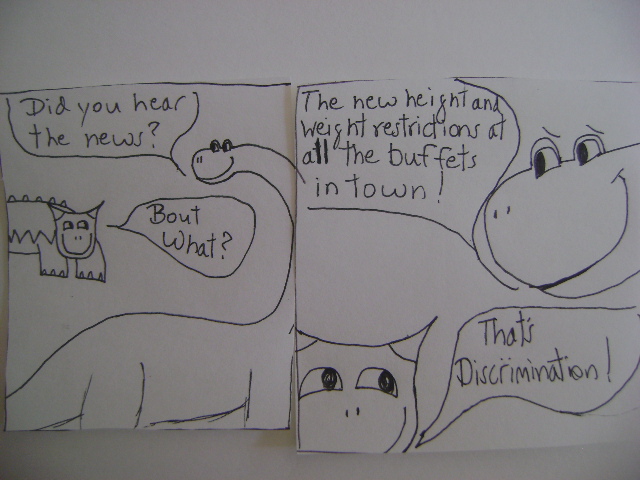 Did you hear
the news?
Bout
What?
The new height and
weight restrictions at
all the buffets
in town!
That's
Discrimination!